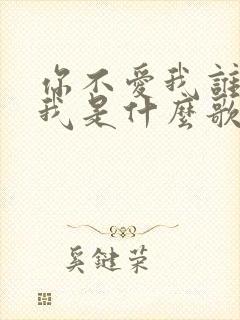 你不愛我誰
我是什麼歌
奚鍵荣